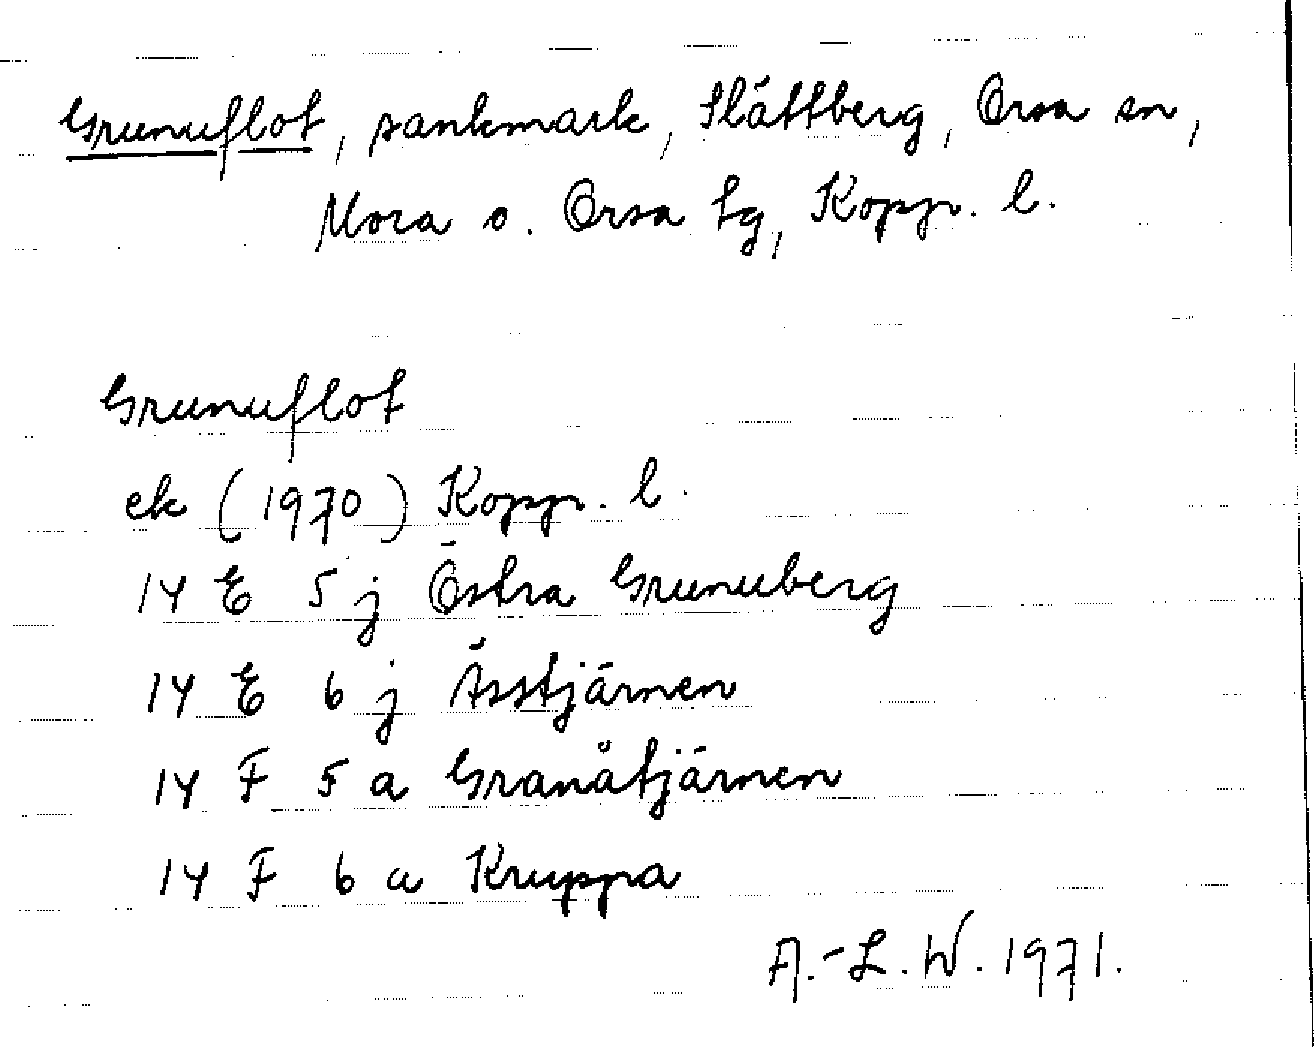 Grunuflot, sankmark, Slättberg, Orsa sn,
Mora o. Orsa tg, Kopp. l.
Grunuflot
ek (1970) Kopp. l.
14 E 5 j Östra Grunuberg
14 E 6 j Ässtjärnen
14 F 5 a Granåtjärnen
14 F 6 a Kruppa
A.-L. W. 1971.